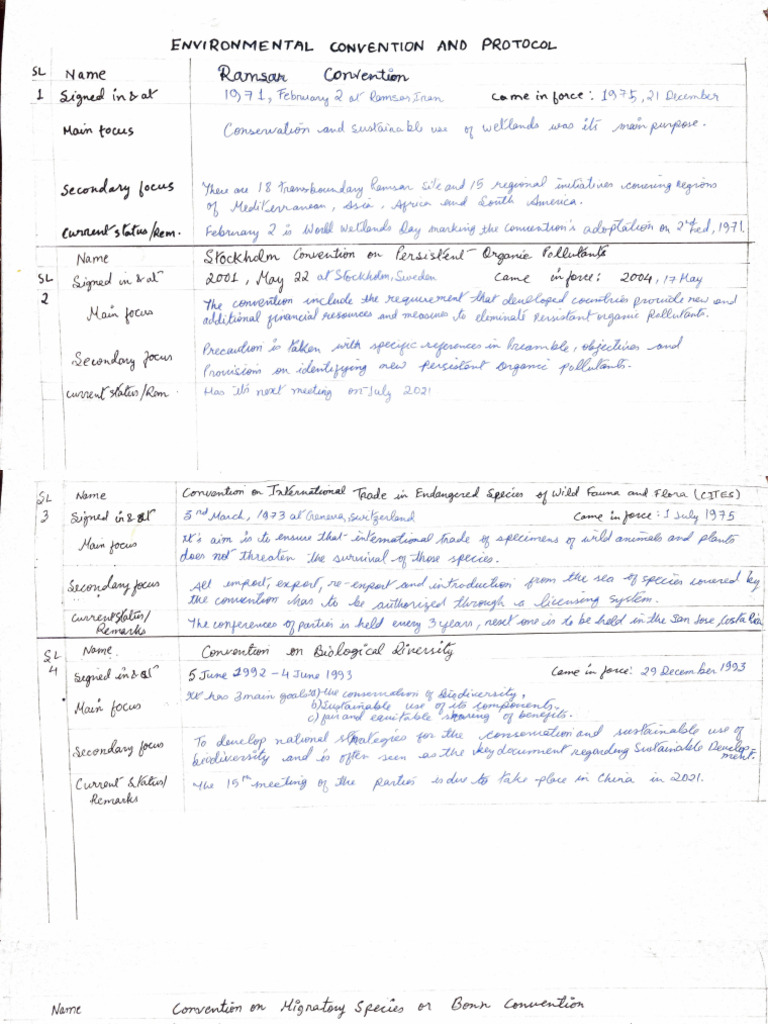 ENVIRONMENTAL CONVENTION AND PROTOCOL
SL Name Ramsar Convention
1 Signed in & at 1971, February 2 at Ramsar Iran Came in force: 1975, 21 December
Main focus Conservation and sustainable use of wetlands was its main purpose.
Secondary focus There are 18 Transboundary Ramsar Site and 15 regional initiatives covering regions
of Mediterranean, Asia, Africa and South America.
Current status/Rem. February 2 is World Wetlands Day marking the convention's adoptation on 2nd Feb, 1971.
Name Stockholm Convention on Persistent Organic Pollutants
SL Signed in & at 2001, May 22 at Stockholm, Sweden Came in force: 2004, 17 May
2 Main focus The convention include the requirement that developed countries provide new and
additional financial resources and measures to eliminate Persistant organic Pollutants.
Secondary focus Precaution is taken with specific references in Preamble, objectives and
Provisions on identifying new Persistent Organic pollutants.
Current status/Rem Has it's next meeting on July 2021
SL Name Convention on International Trade in Endangered Species of Wild Fauna and Flora (CITES)
3 Signed in & at 3rd March, 1973 at Geneva, Switzerland Came in force: 1 July 1975
Main focus It's aim is to ensure that international trade of specimens of wild animals and plants
does not threaten the survival of those species.
Secondary focus All import, export, re-export and introduction from the sea of species covered by
the convention has to be authorized through a licensing system.
Current status/ The conferences of parties is held every 3 years, next one is to be held in the San Jose Costa Rica
Remarks
SL Name Convention on Biological diversity
4 Signed in & at 5 June 1992 - 4 June 1993 Came in force: 29 December 1993
Main focus It has 3 main goals: a) the conservation of Biodiversity,
b) Sustainable use of its components.
c) fair and equitable sharing of benefits.
Secondary focus To develop national strategies for the conservation and sustainable use of
biodiversity and is often seen as the key document regarding Sustainable Develop
ment.
Current status/ The 15th meeting of the parties is due to take place in China in 2021.
Remarks
Name Convention on Migratory Species or Bonn Convention